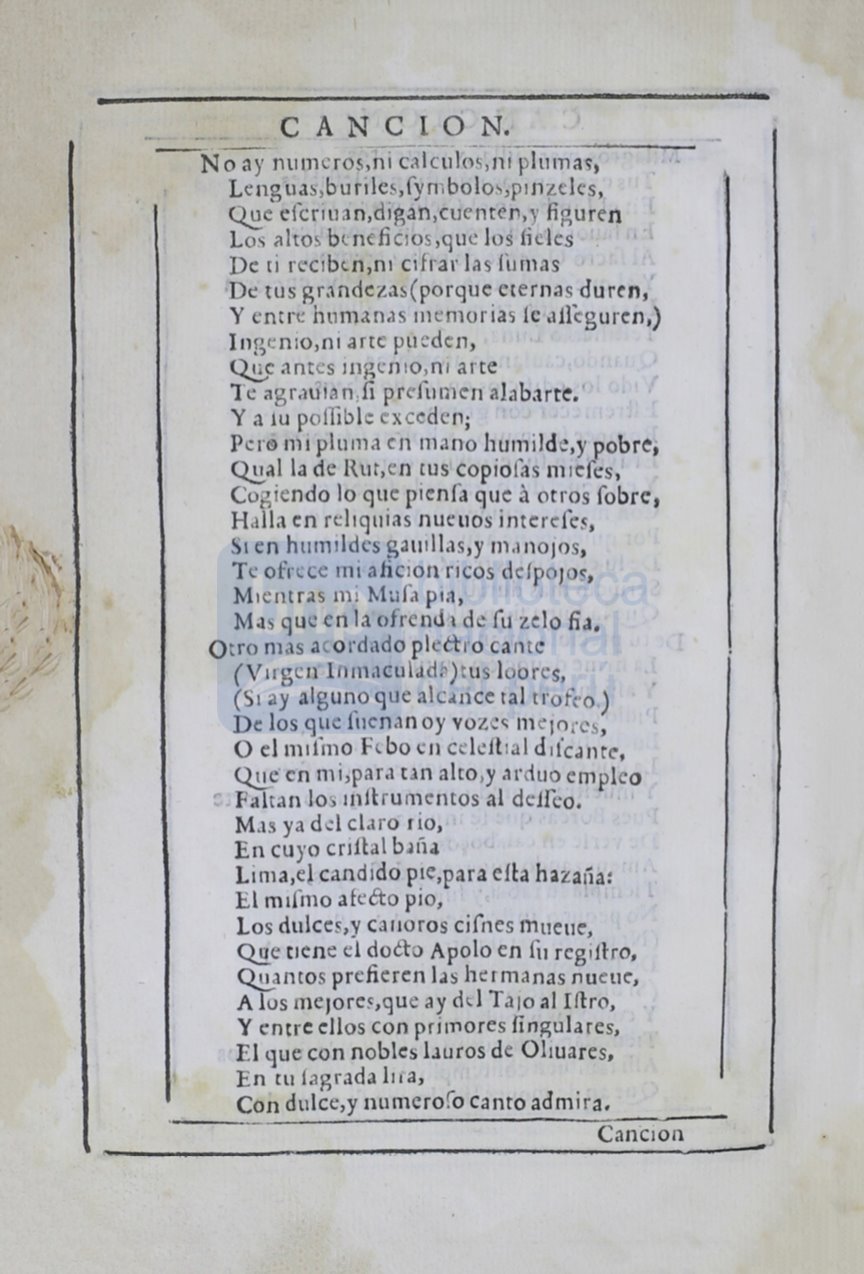 CANCION.
No ay numeros,ni calculos,ni plumas,
Lenguas,buriles,ſymbolos,pinzeles,
Que eſcriuan,digan,cuenten,y figuren
Los altos beneficios,que los fieles
De ti reciben,ni cifrar las ſumas
De tus grandezas(porque eternas duren,
Y entre humanas memorias ſe aſſeguren,)
Ingenio,ni arte pueden,
Que antes ingenio,ni arte
Te agrauian,ſi preſumen alabarte.
Y a ſu poſſible exceden;
Pero mi pluma en mano humilde,y pobre,
Qual la de Rut,en tus copioſas mieſes,
Cogiendo lo que pienſa que à otros ſobre,
Halla en reliquias nueuos intereſes,
Si en humildes gauillas,y manojos,
Te ofrece mi aficion ricos deſpojos,
Mientras mi Muſa pia,
Mas que en la ofrenda de ſu zelo fia.
Otro mas acordado plectro cante
(Virgen Inmaculada)tus loores,
(Si ay alguno que alcance tal trofeo.)
De los que ſuenan oy vozes mejores,
O el miſmo Febo en celeſtial diſcante,
Que en mi,para tan alto,y arduo empleo
Faltan los inſtrumentos al deſſeo.
Mas ya del claro rio,
En cuyo criſtal baña
Lima,el candido pie,para eſta hazaña:
El miſmo afecto pio,
Los dulces,y canoros ciſnes mueue,
Que tiene el docto Apolo en ſu regiſtro,
Quantos prefieren las hermanas nueue,
A los mejores,que ay del Tajo al Iſtro,
Y entre ellos con primores ſingulares,
El que con nobles lauros de Oliuares,
En tu ſagrada lira,
Con dulce,y numeroſo canto admira.
Cancion